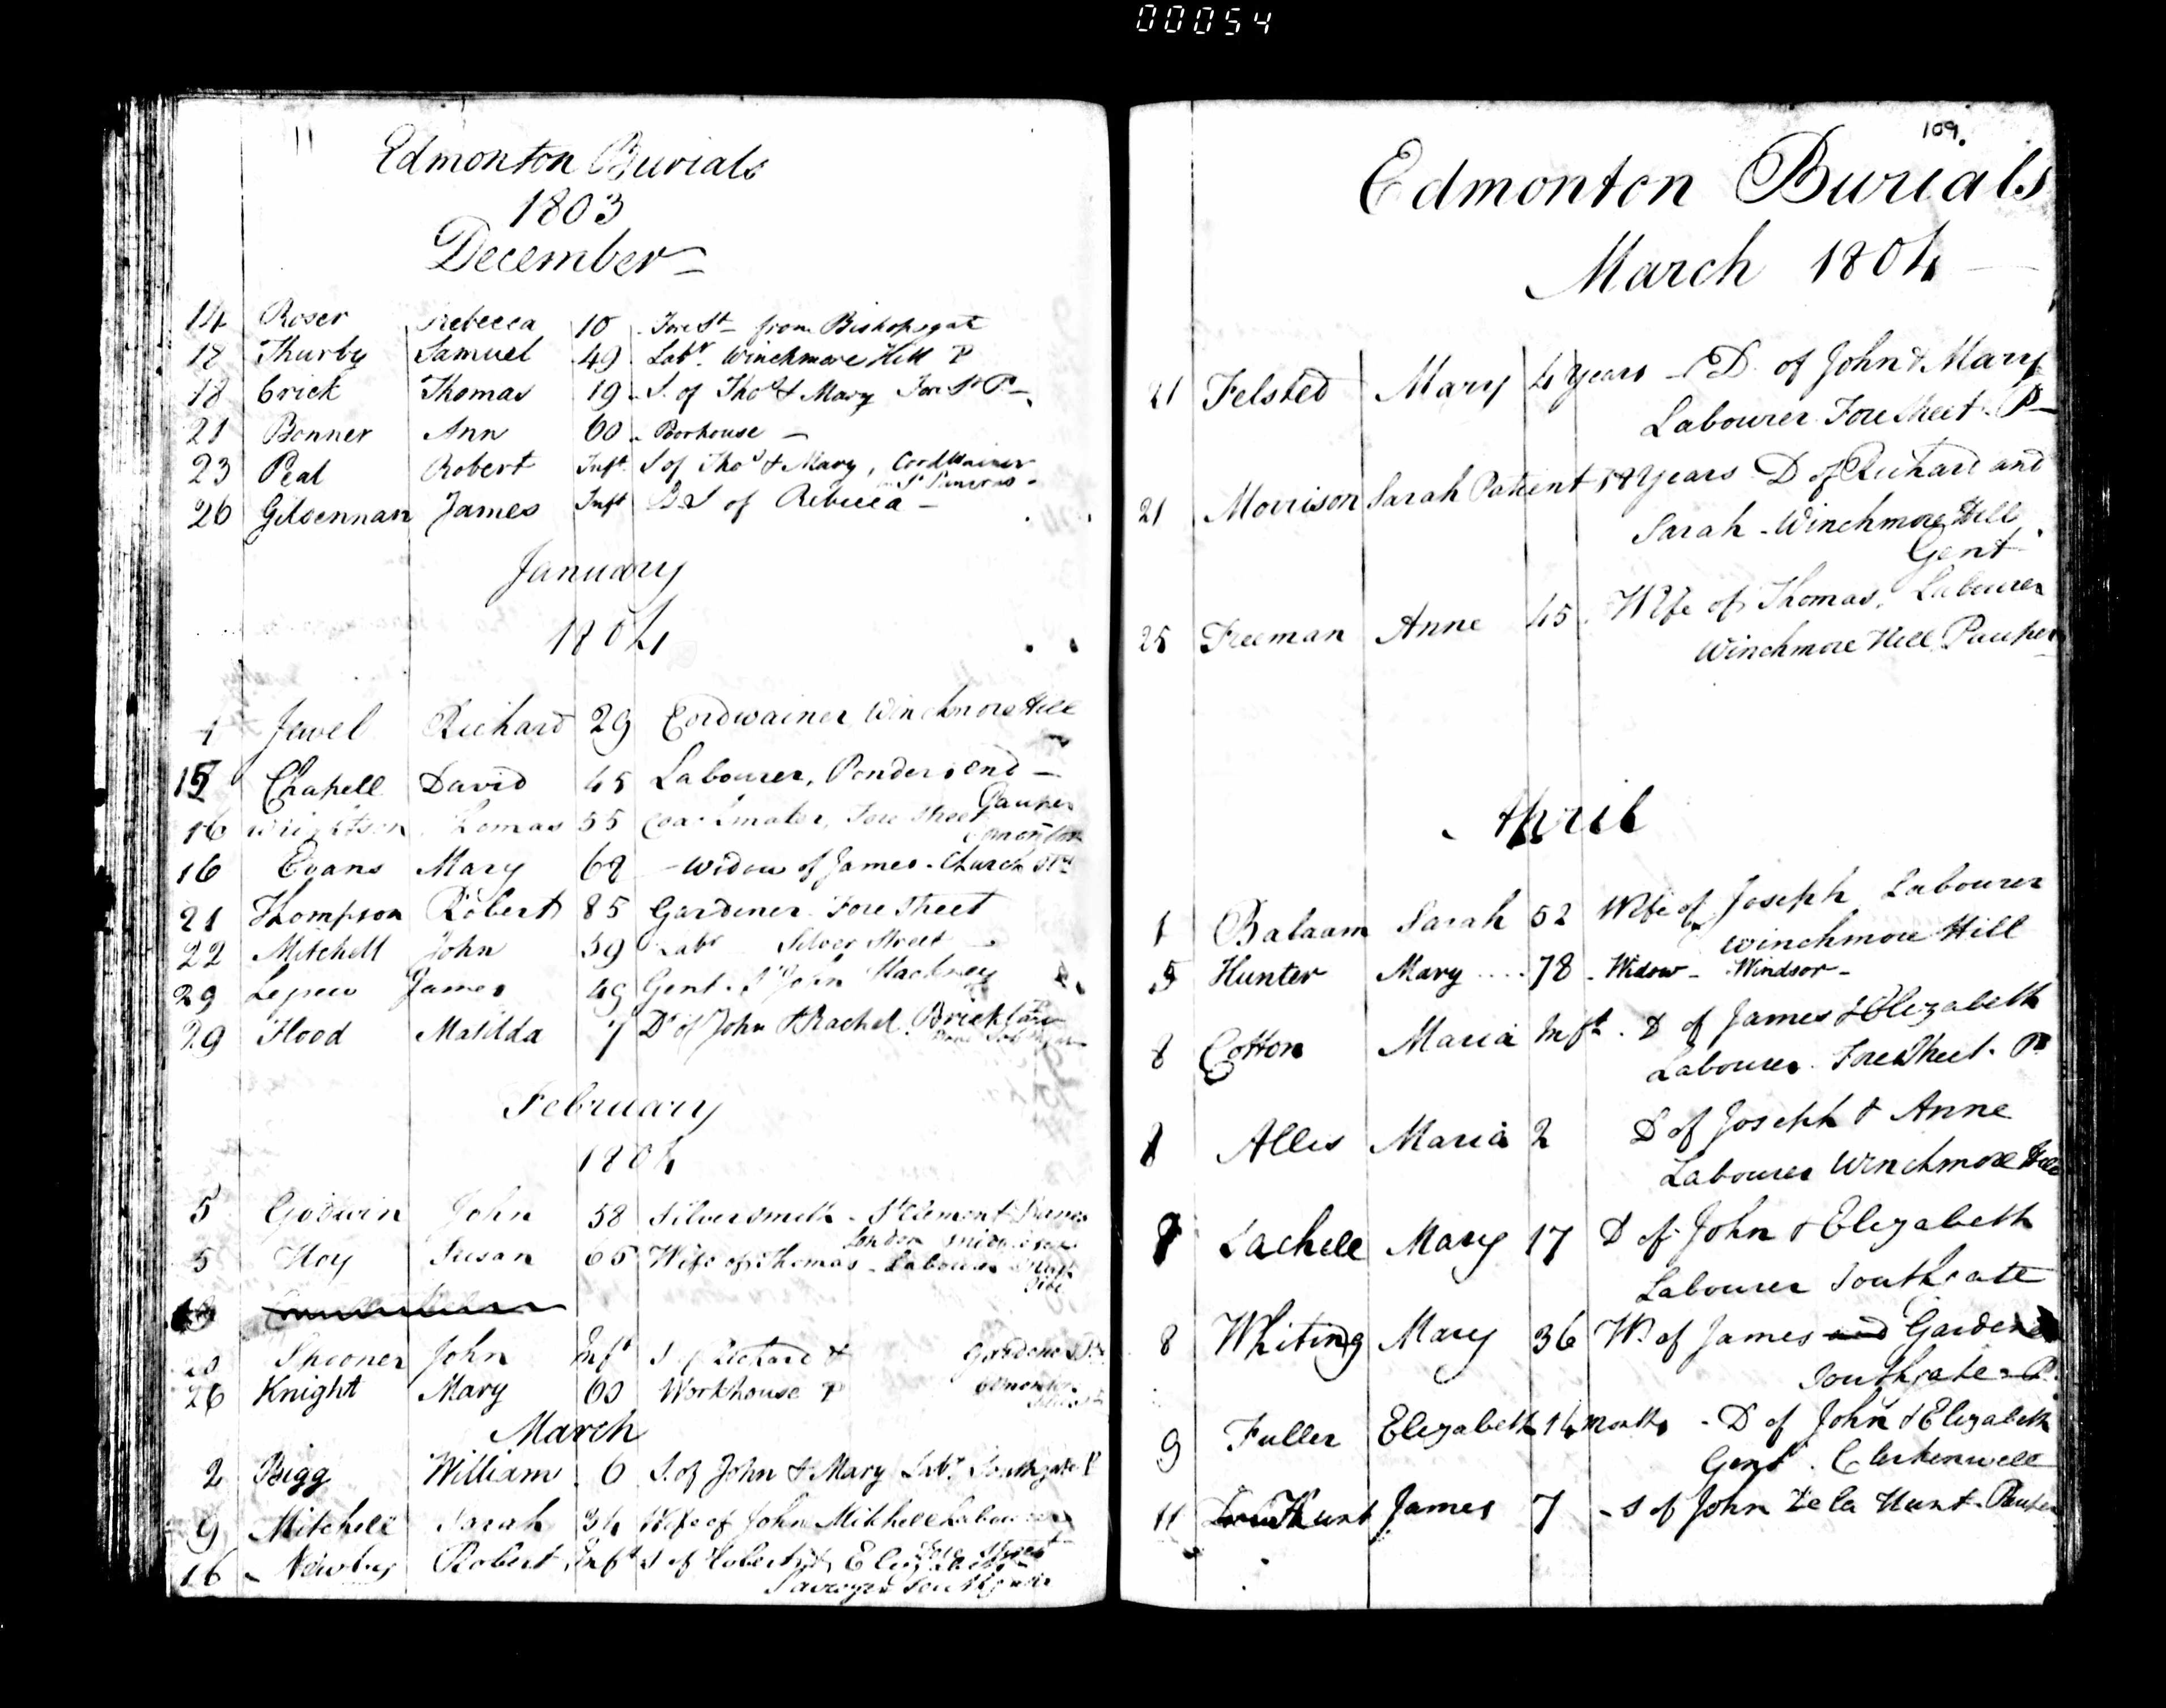 00054
11
Edmonton Burials
1803
December
14 Roser Rebecca 10 Fore St from Bishopsgate
18 Thurby Samuel 49 Labr. Winchmore Hill P
18 Crick Thomas 19 S. of Thos & Mary Fore St P
21 Bonner Ann 60 Poorhouse
23 Peal Robert Inft S of Thos & Mary, Cordwainer
St Pancras
26 Gildennan James Inft B S of Rebecca
January
1804
Jewel Richard 29 Cordwainer Winchmore Hill
15 Chapell David 45 Labourer, Ponders end
Pauper
16 55 Coachmaker, Fore Street
Edmonton
16 Evans Mary 68 Widow of James Church St
21 Thompson Robert 85 Gardener Fore Street
22 Mitchell John 59 Labr Silver Street
29 James 49 Gent. St John Hackney
29 Flood Matilda 7 Dr of John & Rachel Brick
February
1804
5 Godwin John 58 Silversmith St Clement Danes
London Middlesex
5 Hoy Susan 65 Wife of Thomas Labourer
Spooner John Inft S of Richard & Gardener
26 Knight Mary 60 Workhouse P Edmonton
March
2 Bigg William 6 S. of John & Mary Labr Southgate P
9 Mitchell Sarah 34 Wife of John Mitchell Labourer
Fore Street
16 Newby Robert Inft S of Robert & Elizabeth
Southgate
109.
Edmonton Burials
March 1804
21 Felsted Mary 4 years D. of John & Mary
Labourer Fore Street P
21 Morrison Sarah Patient years D of Richard and
Sarah Winchmore Hill
Gent
25 Freeman Anne 45 Wife of Thomas, Labourer
Winchmore Hill Pauper
April
1 Balaam Sarah 52 Wife of Joseph Labourer
Winchmore Hill
5 Hunter Mary 78 Widow Windsor
8 Cotton Maria Inft. D of James & Elizabeth
Labourer Fore Street. P
8 Alles Maria 2 D of Joseph & Anne
Labourer Winchmore Hill
8 Lachell Mary 17 D of John & Elizabeth
Labourer Southgate
8 Whiting Mary 36 W of James and Gardener
Southgate P.
9 Fuller Elizabeth 14 Months D of John & Elizabeth
Gent. Clerkenwell
11 Hunt James 7 S of John De la Hunt Pauper